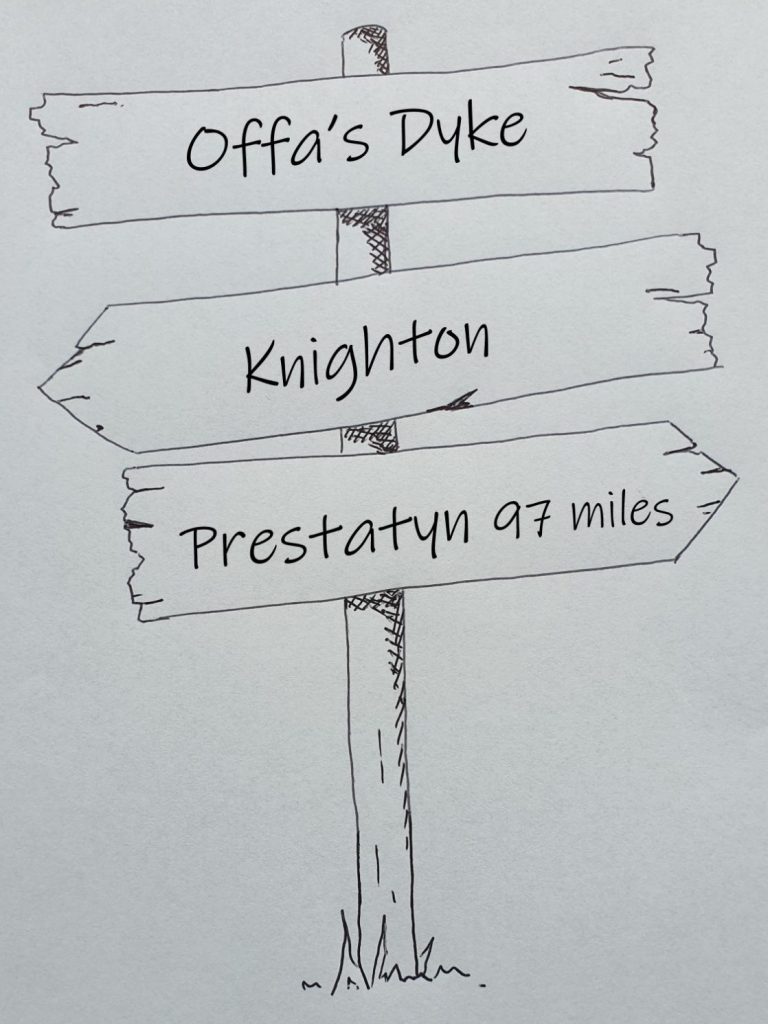 Offa's Dyke
Knighton
Prestatyn 97 miles